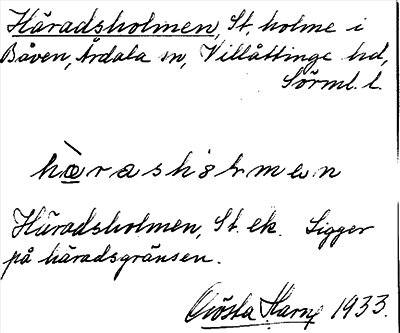 Häradsholmen, St. holme i
Båven, Årdala sn, Villåttinge hd,
Sörml. l.
hæ̀rashɵlmen
Häradsholmen, St. ek. Ligger
på häradsgränsen.
Gösta Harny 1933.